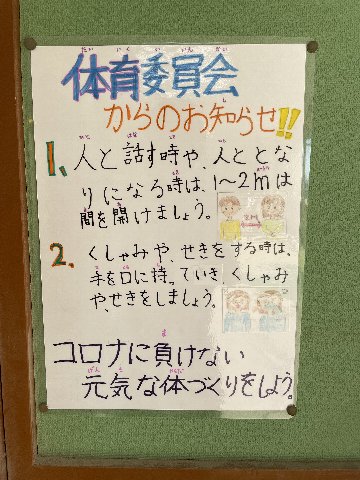 体育委員会
からのお知らせ!!
1、人と話す時や、人ととな
りになる時は、1〜2mは
間を開けましょう。
2、くしゃみや、せきをする時は、
手を口に持っていき、くしゃみ
や、せきをしましょう。
コロナに負けない
元気な体づくりをしよう。